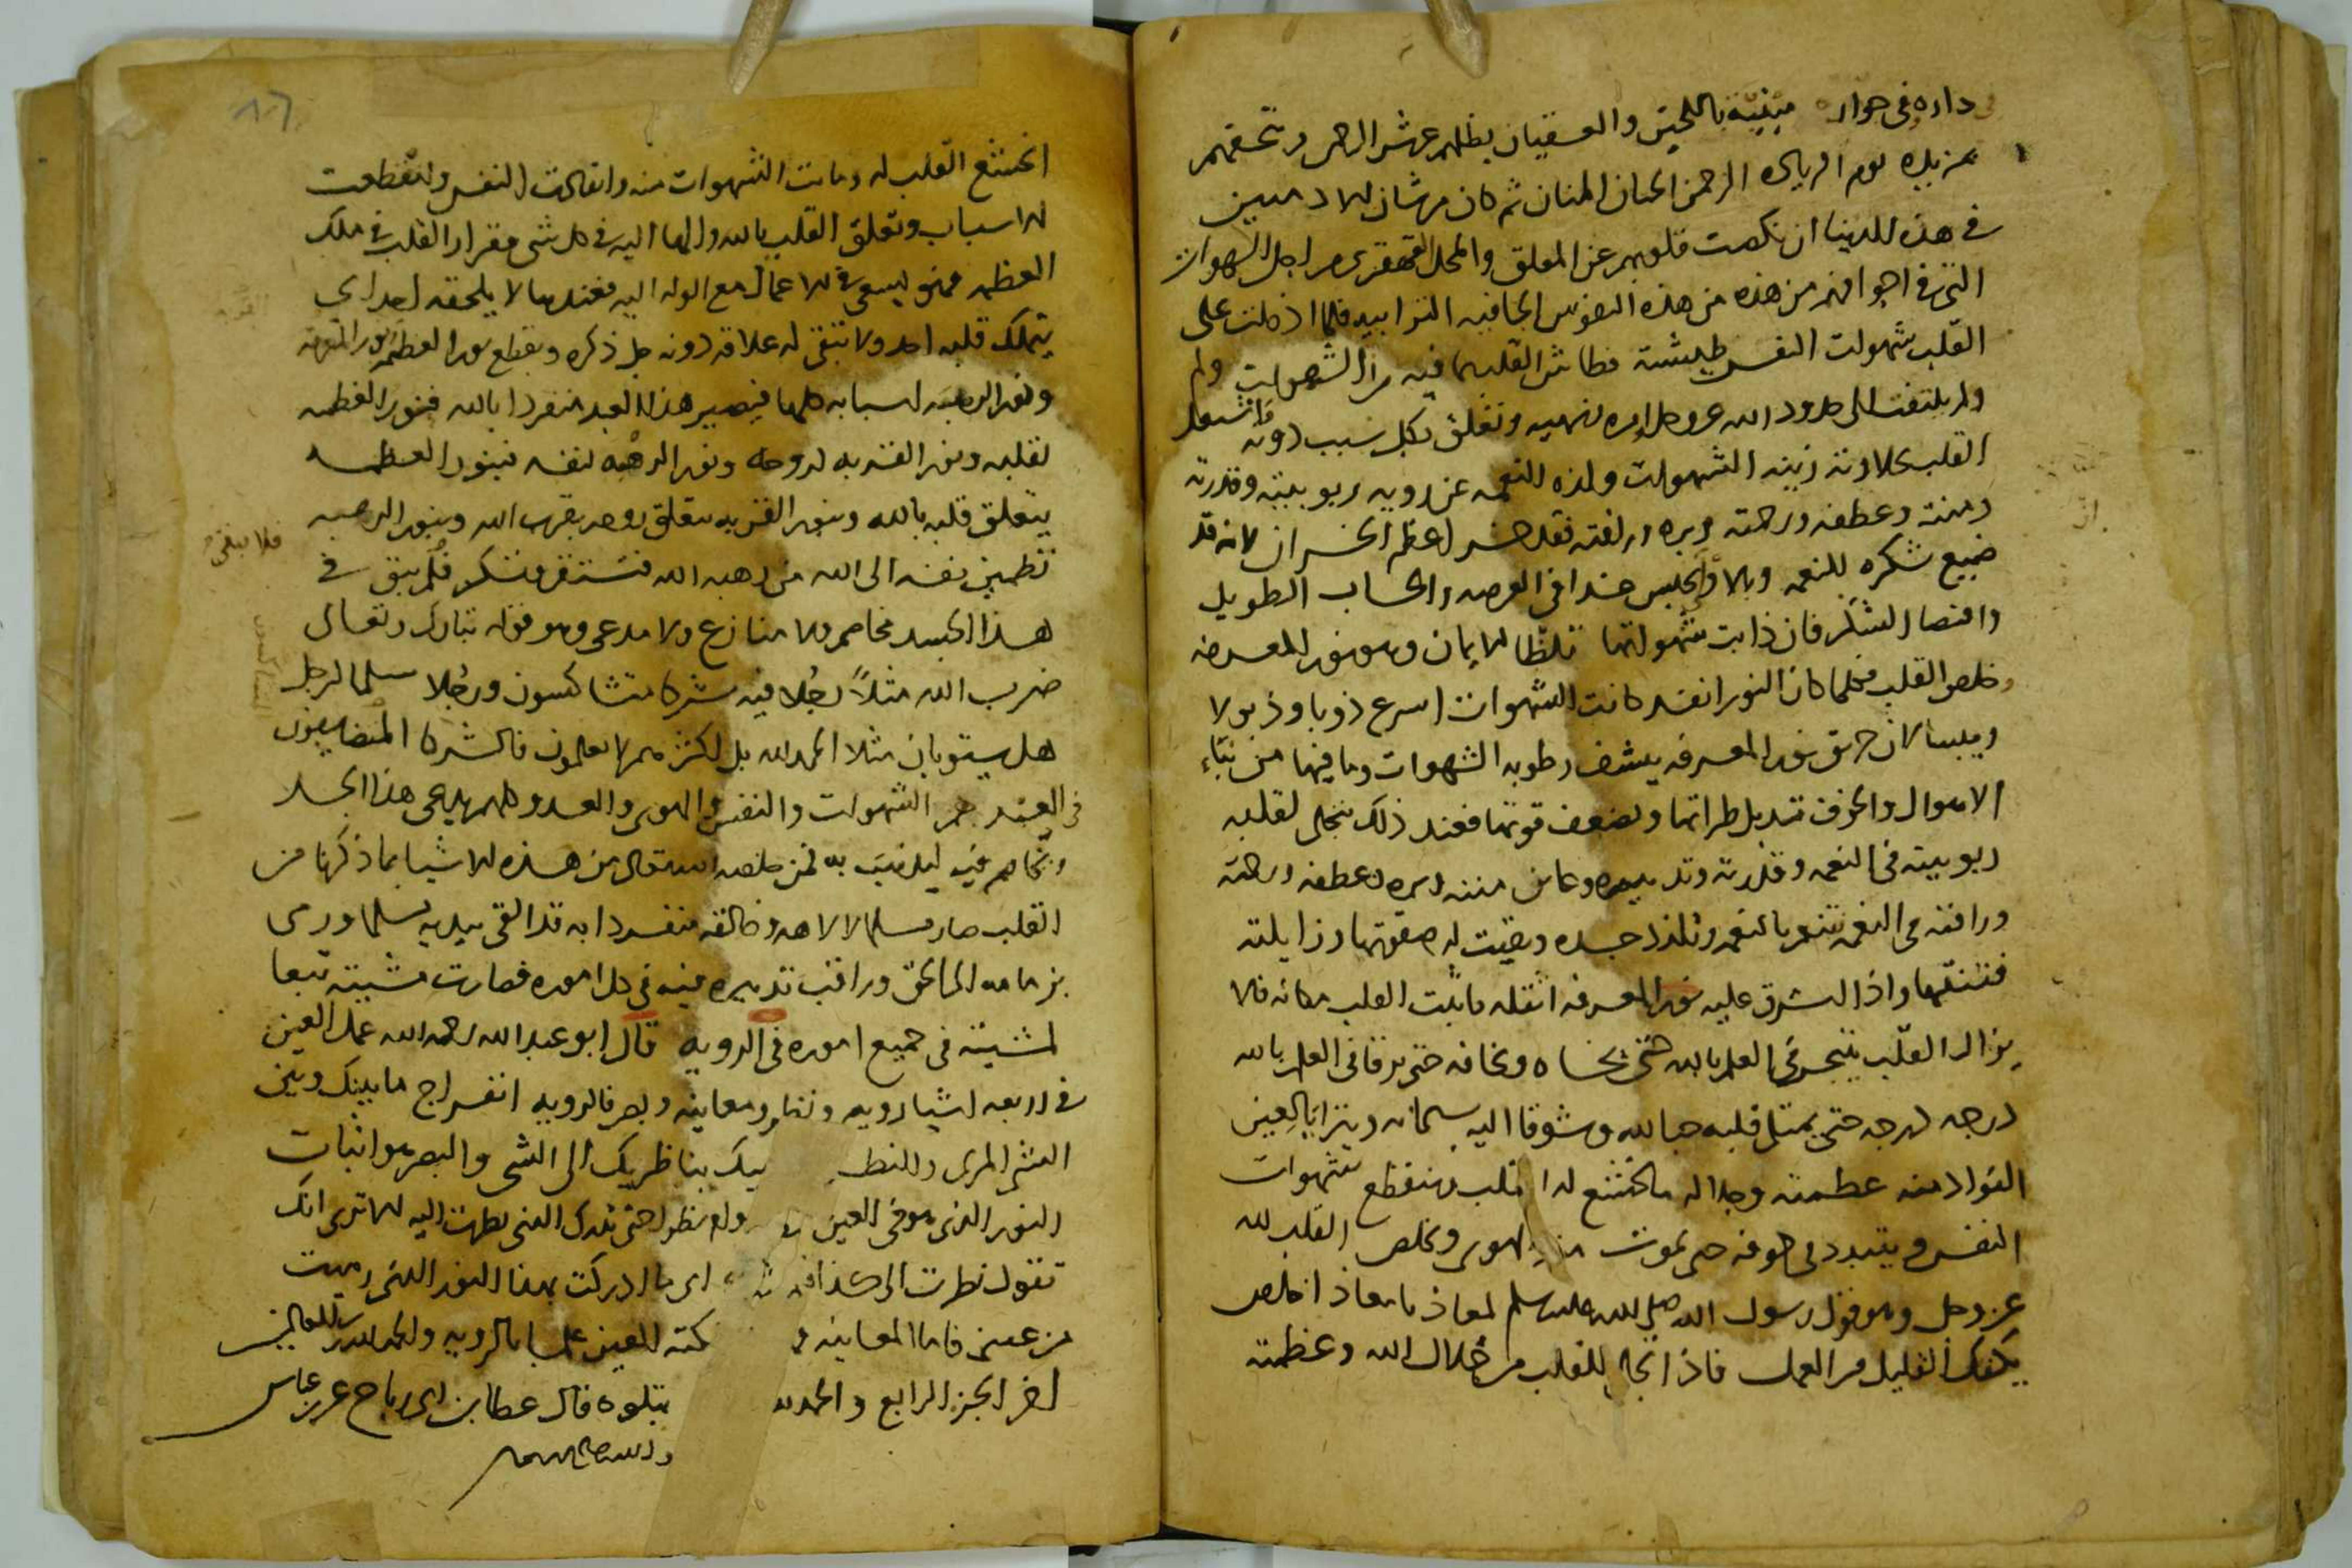 داره في جواره مبنية باللجين والعقيان يظلهم عرش الرحمن ويتحفهم
بمزيده يوم الزيارة الرحمن الحنان المنان ثم كان من شان الادميين
في هذه الدنيا ان نكصت قلوبهم عن المعلق والمحل القهقرى من اجل الشهوات
التي في اجوافهم من هذه من هذه النفوس الجافية الترابية فلما اذ دخلت على
القلب شهوات النفس طيشته فطاش القلب بما فيه من الشهوات ولم
ولم يلتفت الى حدود الله عز وجل امره ونهيه وتعلق بكل سبب دونه فاشتغل
القلب بحلاوته زينة الشهوات ولذة النعمة عن رؤية ربوبيته وقدرته
ومننه وعطفه ورحمته وبره ورافته فقد خسر اعظم الخسران لانه قد
ضيع شكره للنعمة وبالا والحبس غدا في العرصة والحساب الطويل
واقتضا الشكر فان ذابت شهواتها تلظا الايمان وهو نور المعرفة
وخلص القلب فكلما كان النور انفذ كانت الشهوات اسرع ذوبا وذبولا
ويبسا لان حريق نور المعرفة ينشف رطوبة الشهوات وما فيها من
الاهوال والخوف تذبل طراتها وتضعف قوتها فعند ذلك يتجلى لقلبه
ربوبيته في النعمة وقدرته وتدبيره وعاين مننه وبره وعطفه ورحمته
ورافته في النعمة فتنعم بالنعمة وتلذذ جسده وبقيت له صفوتها وزايلته
فتنتها واذا اشرق عليه نور المعرفة اثقله فاثبت القلب مكانه فلا
يزال القلب يتبحر في العلم بالله حتى يخشاه ويخافه حتى يرقا في العلم بالله
درجة درجة حتى يمتلي قلبه حبا لله وشوقا اليه سبحانه ويترايا لعين
الفؤاد منه عظمته وجلاله ما يخشع له القلب وينقطع شهوات
النفس ويتبدد في جوفه حتى يموت منه الهوى ويخلص القلب لله
عز وجل وهو قول رسول الله صلى الله عليه وسلم لمعاذ يا معاذ اخلص
يكفك القليل من العمل فاذا تجلى للقلب من جلال الله وعظمته
انخشع القلب له وماتت الشهوات منه وانقادت النفس وانقطعت
الاسباب وتعلق القلب بالله والها اليه في كل شي فقرار القلب في ملك
العظمة فهو يسعى في الاعمال مع الوله اليه فعندها لا يلحقه احد اي
يتملك قلبه احد ولا تبقى له علاقة دونه جل ذكره ويقطع نور العظمة ونور القربة
ونور الرهبة اسبابه كلها فيصير هذا العبد منفردا بالله فنور العظمة
لقلبه ونور القربة لروحه ونور الرهبة لنفسه فبنور العظمة
يتعلق قلبه بالله وبنور القربة يتعلق روحه بقرب الله وبنور الرهبة
تطمئن نفسه الى الله من رهبة الله فتستقر وتسكن فلم يبق في
فلا يبقى
هذا الجسد مخاصم ولا منازع ولا مدعي وهو قوله تبارك وتعالى
ضرب الله مثلا رجلا فيه شركا متشاكسون ورجلا سلما لرجل
هل يستويان مثلا الحمد لله بل اكثرهم لا يعلمون فالشركا
في العبد هم الشهوات والنفس والهوى والعدو كلهم يدعى هذا الجسد
ويخاصم فيه ليذهب به فمن خلصه الله تعالى من هذه الاشيا بما ذكرنا من
القلب صار مسلما لالاهه وخالقه منفردا به قد القى بيديه سلما ورمى
بزمامه الى الحق وراقب تدبيره فيه في كل اموره فصارت مشيته تبعا
لمشيته في جميع اموره في الرؤية قال ابو عبد الله رحمه الله عمل العين
في اربعة اشيا رؤية ونظر ومعاينة وبصر فالرؤية انفراج ما بينك وبين
الشي المرى والنظر ميك بناظريك الى الشي والبصر هو اثبات
النور الذي هو في العين ولم ينظر حتى تدرك الشي نظرت اليه الا ترى انك
تقول نظرت الى كذا اي ما ادركت بهذا النور الذي رميت
من عيني فاما المعاينة كته العين علما بالرؤية والحمد لله رب العالمين
اخر الجز الرابع والحمد لله يتلوه قال عطا بن ابي رباح عن بن عباس